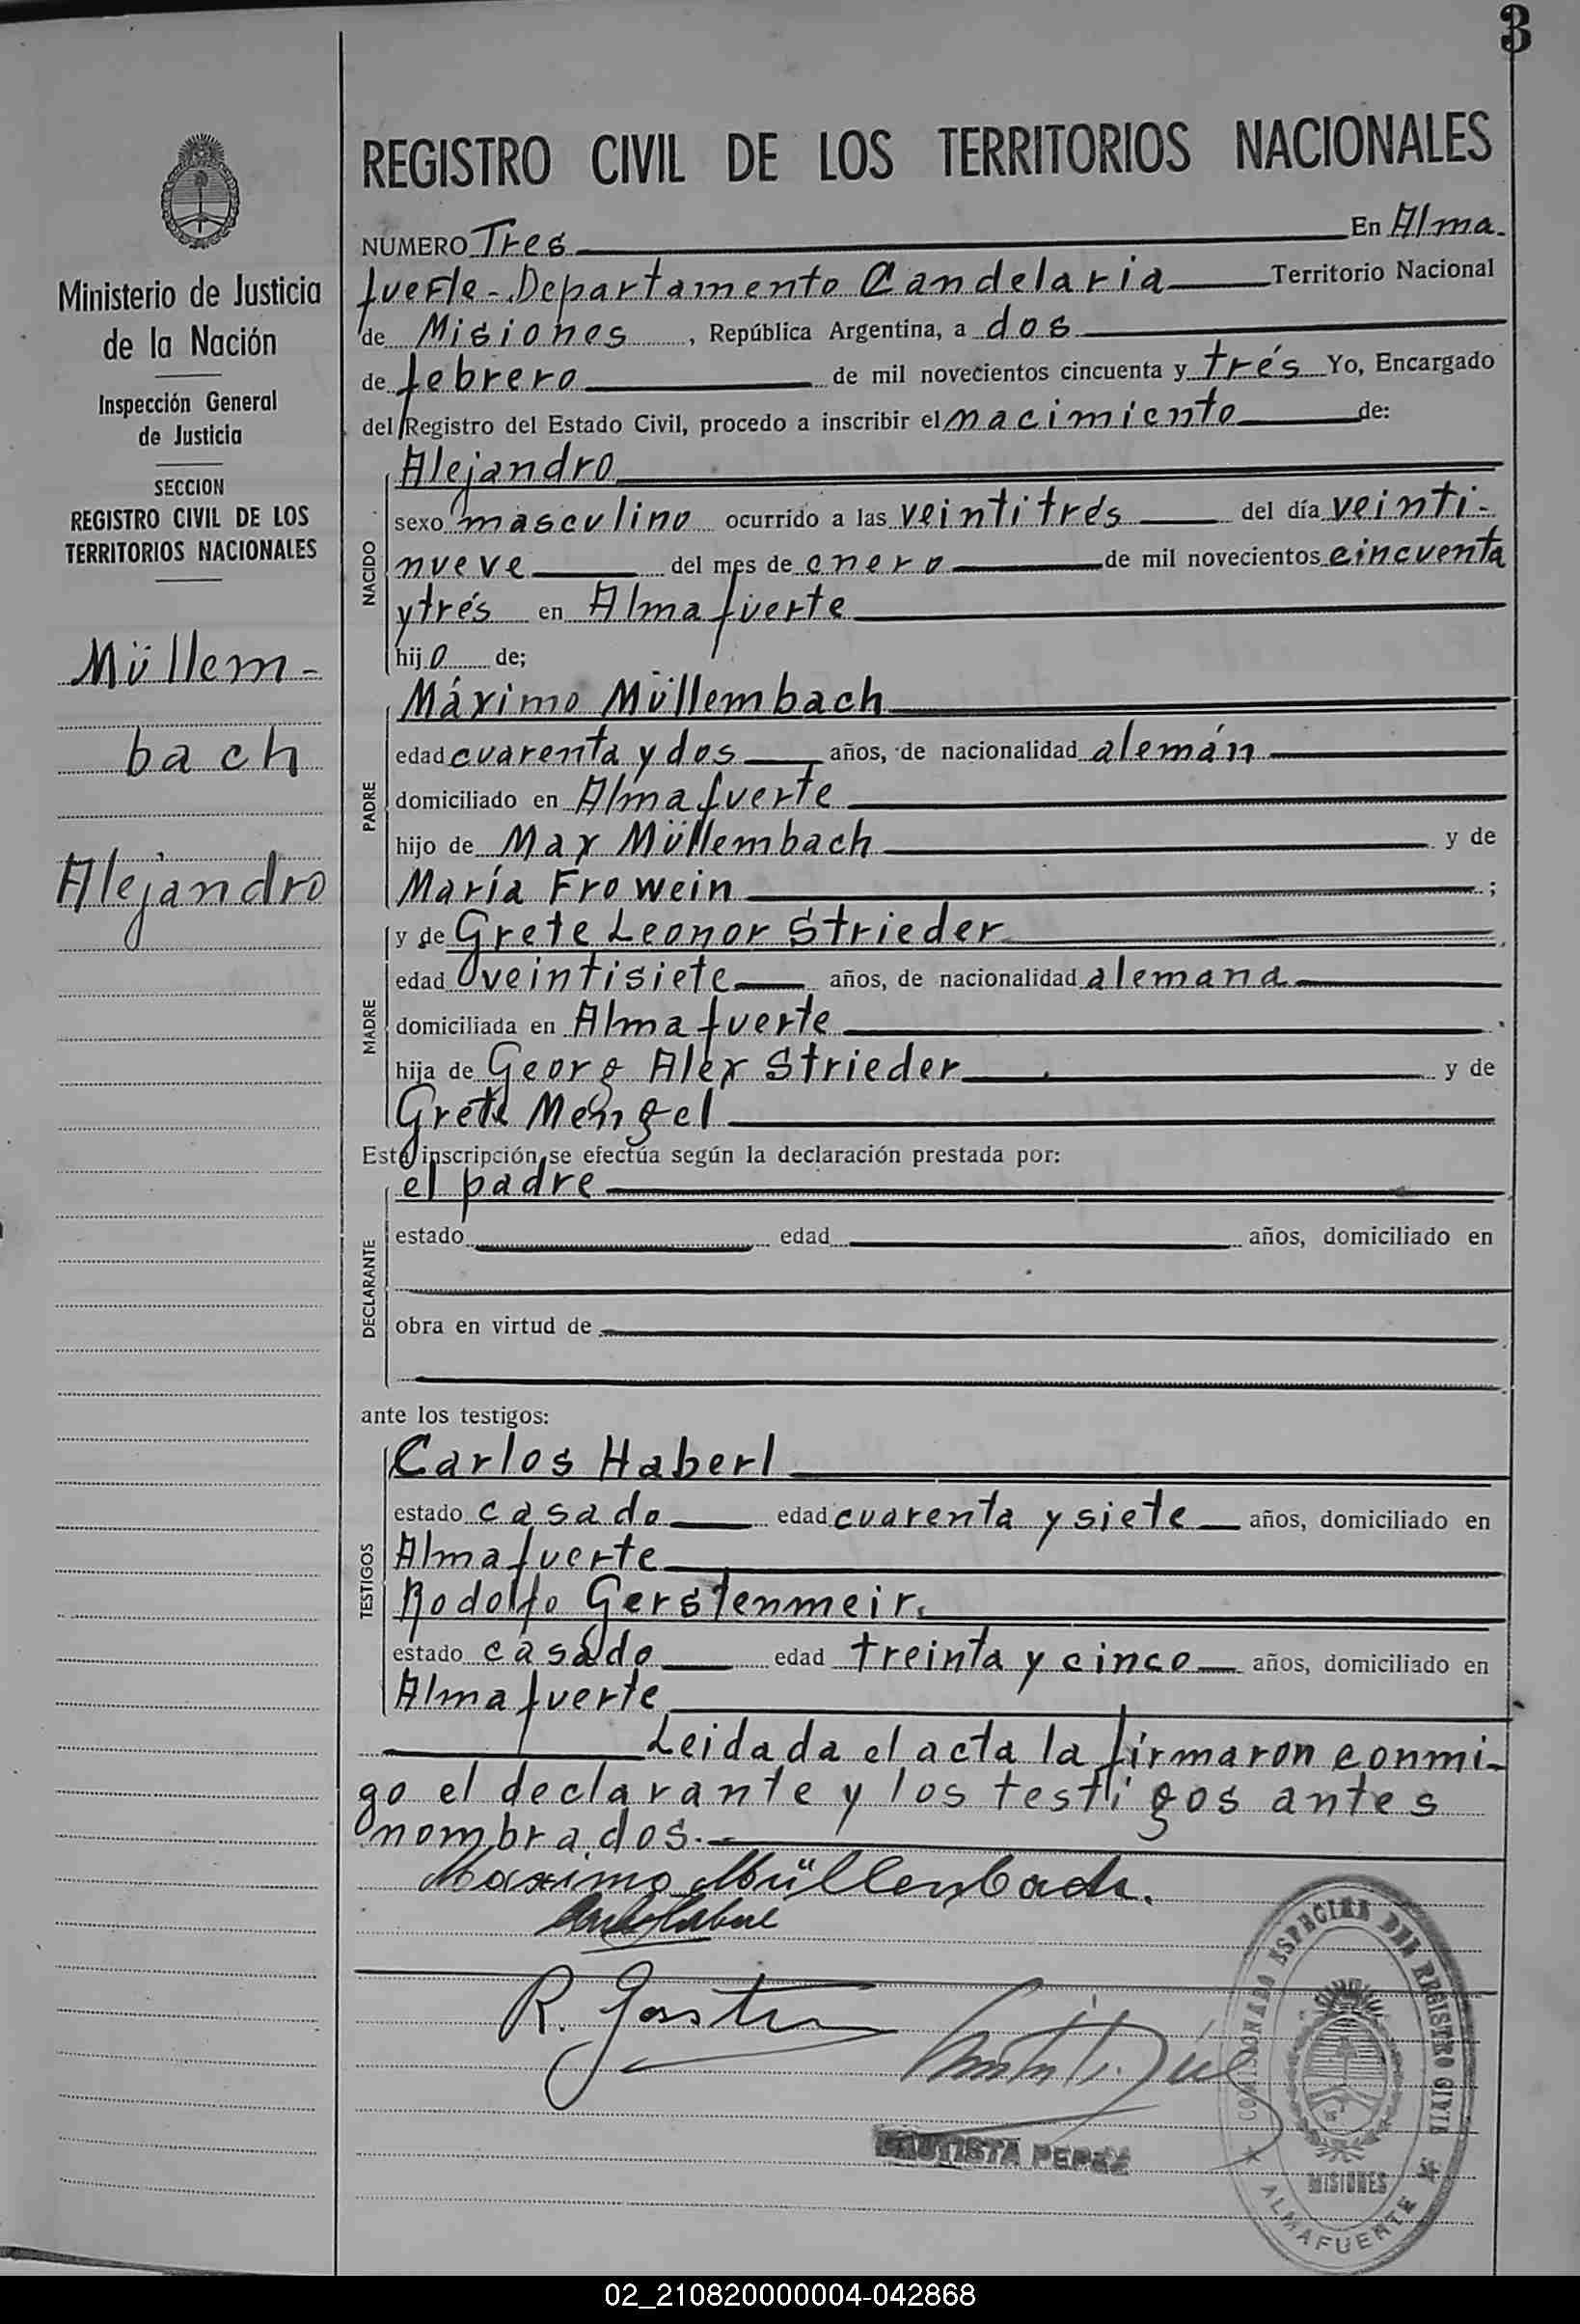 3
REGISTRO CIVIL DE LOS TERRITORIOS NACIONALES
Ministerio de Justicia
de la Nación
Inspección General
de Justicia
SECCION
REGISTRO CIVIL DE LOS
TERRITORIOS NACIONALES
Müllem-
bach
Alejandro
NUMERO Tres En Alma
fuerte - Departamento Candelaria Territorio Nacional
de Misiones, República Argentina, a dos
de febrero de mil novecientos cincuenta y trés Yo, Encargado
del Registro del Estado Civil, procedo a inscribir el nacimiento de:
NACIDO
Alejandro
sexo masculino ocurrido a las veintitrés del día veinti-
nueve del mes de enero de mil novecientos cincuenta
y trés en Almafuerte
hijo de;
PADRE
Máximo Müllembach
edad cuarenta y dos años, de nacionalidad alemán
domiciliado en Almafuerte
hijo de Max Müllembach y de
María Frowein ;
MADRE
y de Grete Leonor Strieder
edad veintisiete años, de nacionalidad alemana
domiciliada en Almafuerte.
hija de Georg Alex Strieder y de
Grete Mengel
Esta inscripción se efectúa según la declaración prestada por:
DECLARANTE
el padre
estado edad años, domiciliado en
obra en virtud de
ante los testigos:
TESTIGOS
Carlos Haberl
estado casado edad cuarenta y siete años, domiciliado en
Almafuerte
Rodolfo Gerstenmeir.
estado casado edad treinta y cinco años, domiciliado en
Almafuerte
Leidada el acta la firmaron conmi-
go el declarante y los testigos antes
nombrados.-
Maximo Müllenbach.
R.
BAUTISTA
COMISIONADA ESPECIAL DEL REGISTRO CIVIL
MISIONES
ALMAFUERTE
02_210820000004-042868